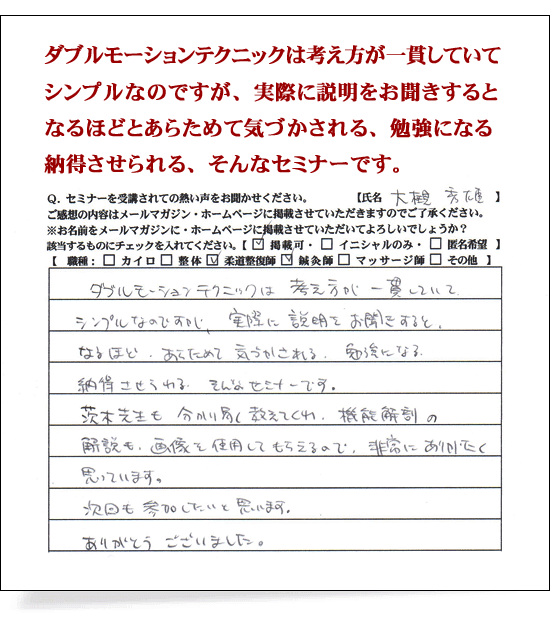 ダブルモーションテクニックは考え方が一貫していて
シンプルなのですが、実際に説明をお聞きすると
なるほどとあらためて気づかされる、勉強になる
納得させられる、そんなセミナーです。
Q. セミナーを受講されての熱い声をお聞かせください。 【氏名 大槻 秀雄 】
ご感想の内容はメールマガジン・ホームページに掲載させていただきますのでご了承ください。
※お名前をメールマガジンに・ホームページに掲載させていただいてよろしいでしょうか？
該当するものにチェックを入れてください。【 ☑ 掲載可・ □ イニシャルのみ・ □ 匿名希望 】
【 職種： □ カイロ □ 整体 ☑ 柔道整復師 ☑ 鍼灸師 □ マッサージ師 □ その他 】
ダブルモーションテクニックは 考え方が 一貫していて
シンプルなのですが、実際に 説明を お聞きすると、
なるほど、あらためて 気づかされる、勉強になる
納得させられる そんなセミナーです。
茨木先生も 分かり易く教えてくれ、機能解剖の
解説も、画像を使用してもらえるので、非常に ありがたく
思っています。
次回も参加したいと思います。
ありがとう ございました。